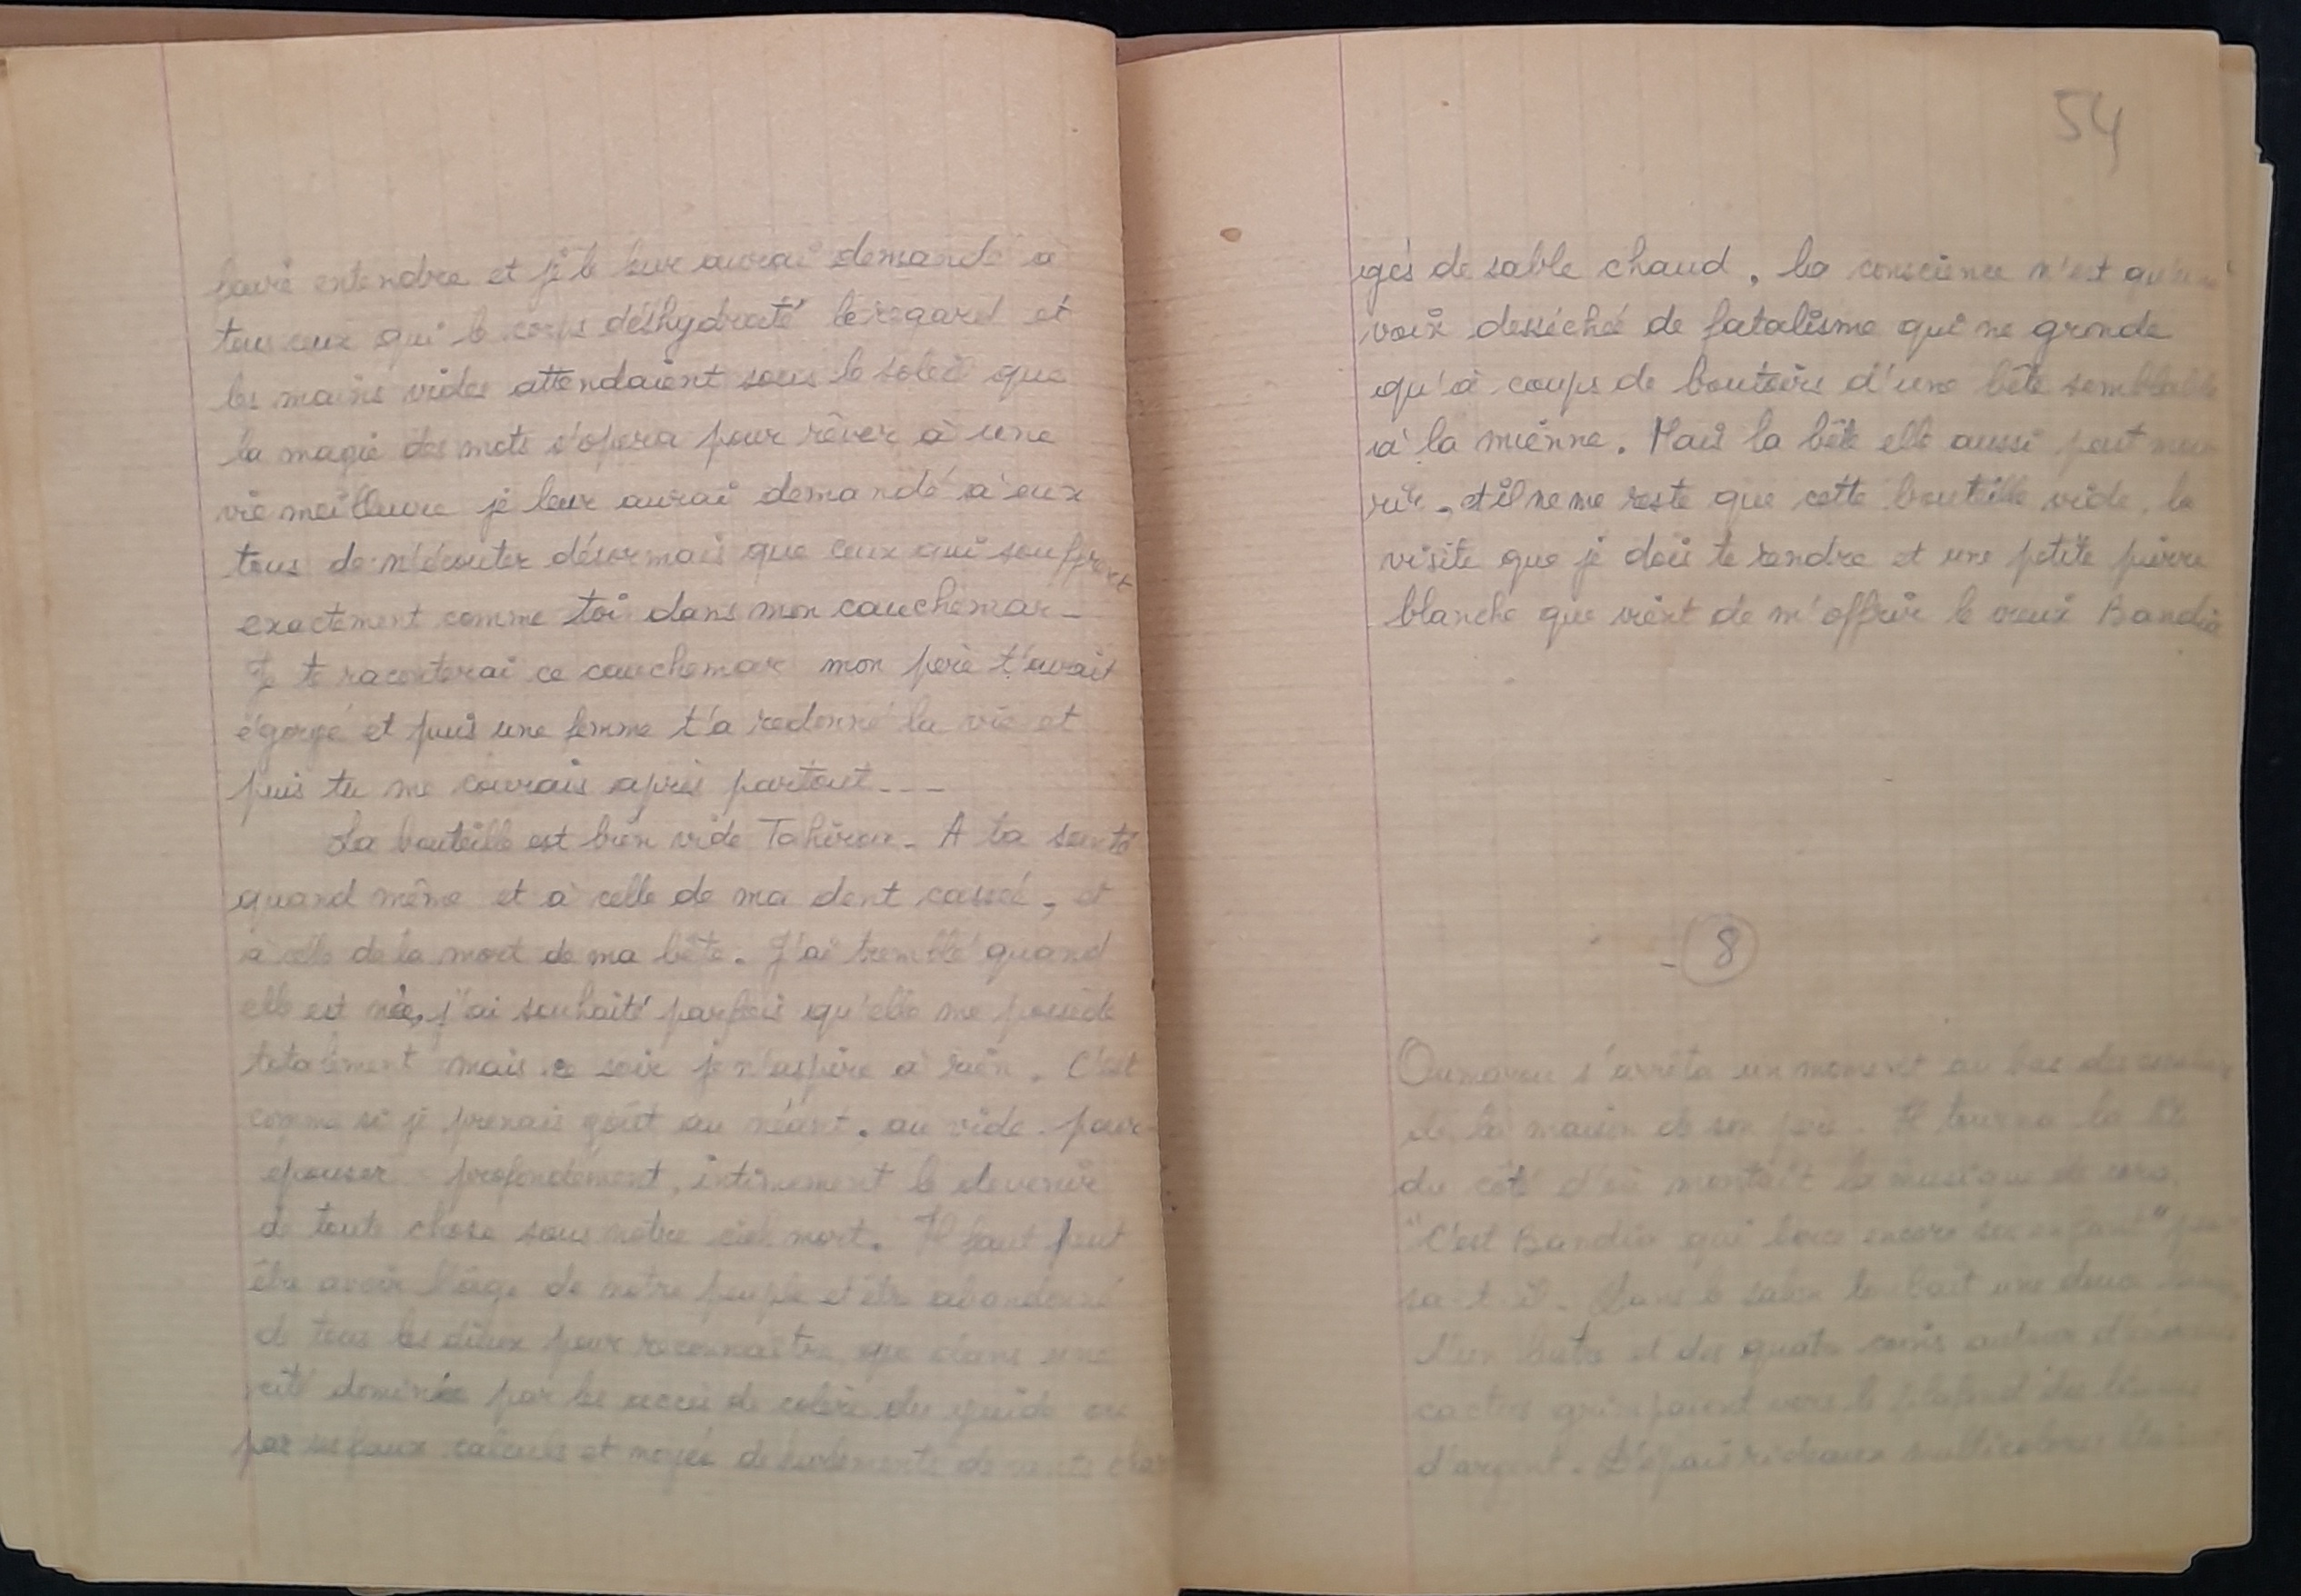 faire entendre et je le leur aurai demandé à
tous ceux qui le corps déshydraté le regard et
les mains vides attendaient sous le soleil que
la magie des mots s'opera pour rêver à une
vie meilleure je leur aurai demandé à eux
tous de n'écouter désormais que ceux qui souffrent
exactement comme toi dans mon cauchemar _
Je te raconterai ce cauchemar mon père t'avait
égorgé et puis une femme t'a redonné la vie et
puis tu me courais après partout _ _ _
La bouteille est bien vide Tahirou _ A ta santé
quand même et à celle de ma dent cassée, et
à celle de la mort de ma bête. J'ai tremblé quand
elle est née, j'ai souhaité parfois qu'elle me possède
totalement mais ce soir je n'aspire à rien. C'est
comme si je prenais goût au néant, au vide pour
épouser profondement, intimement le devenir
de toute chose sous notre ciel mort. Il faut peut
être avoir l'âge de notre peuple et être abandonné
de tous les dieux pour reconnaître que dans une
cité dominée par les accès de colère du guide ou
par ses faux calculs et de vents char
54
gés de sable chaud, la conscience n'est qu'une
voix desséchée de fatalisme qui ne gronde
qu'à coups de boutoirs d'une bête semblable
à la mienne. Mais la bête elle aussi peut mou
rir, et il ne me reste que cette bouteille vide, la
visite que je dois te rendre et une petite pierre
blanche que vient de m'offrir le vieux Bandia
- 8
Oumarou s'arrêta un moment au bas des escaliers
de la maison de son père. Il tourna la tête
du côté d'où montait la musique de cora.
"C'est Bandia qui berce encore son enfant" pen
sa-t-il. Dans le salon tombait une douce
d'un lustre et des quatre coins autour
cactus grimpaient vers le plafond des
d'argent. D'épais rideaux multicolores